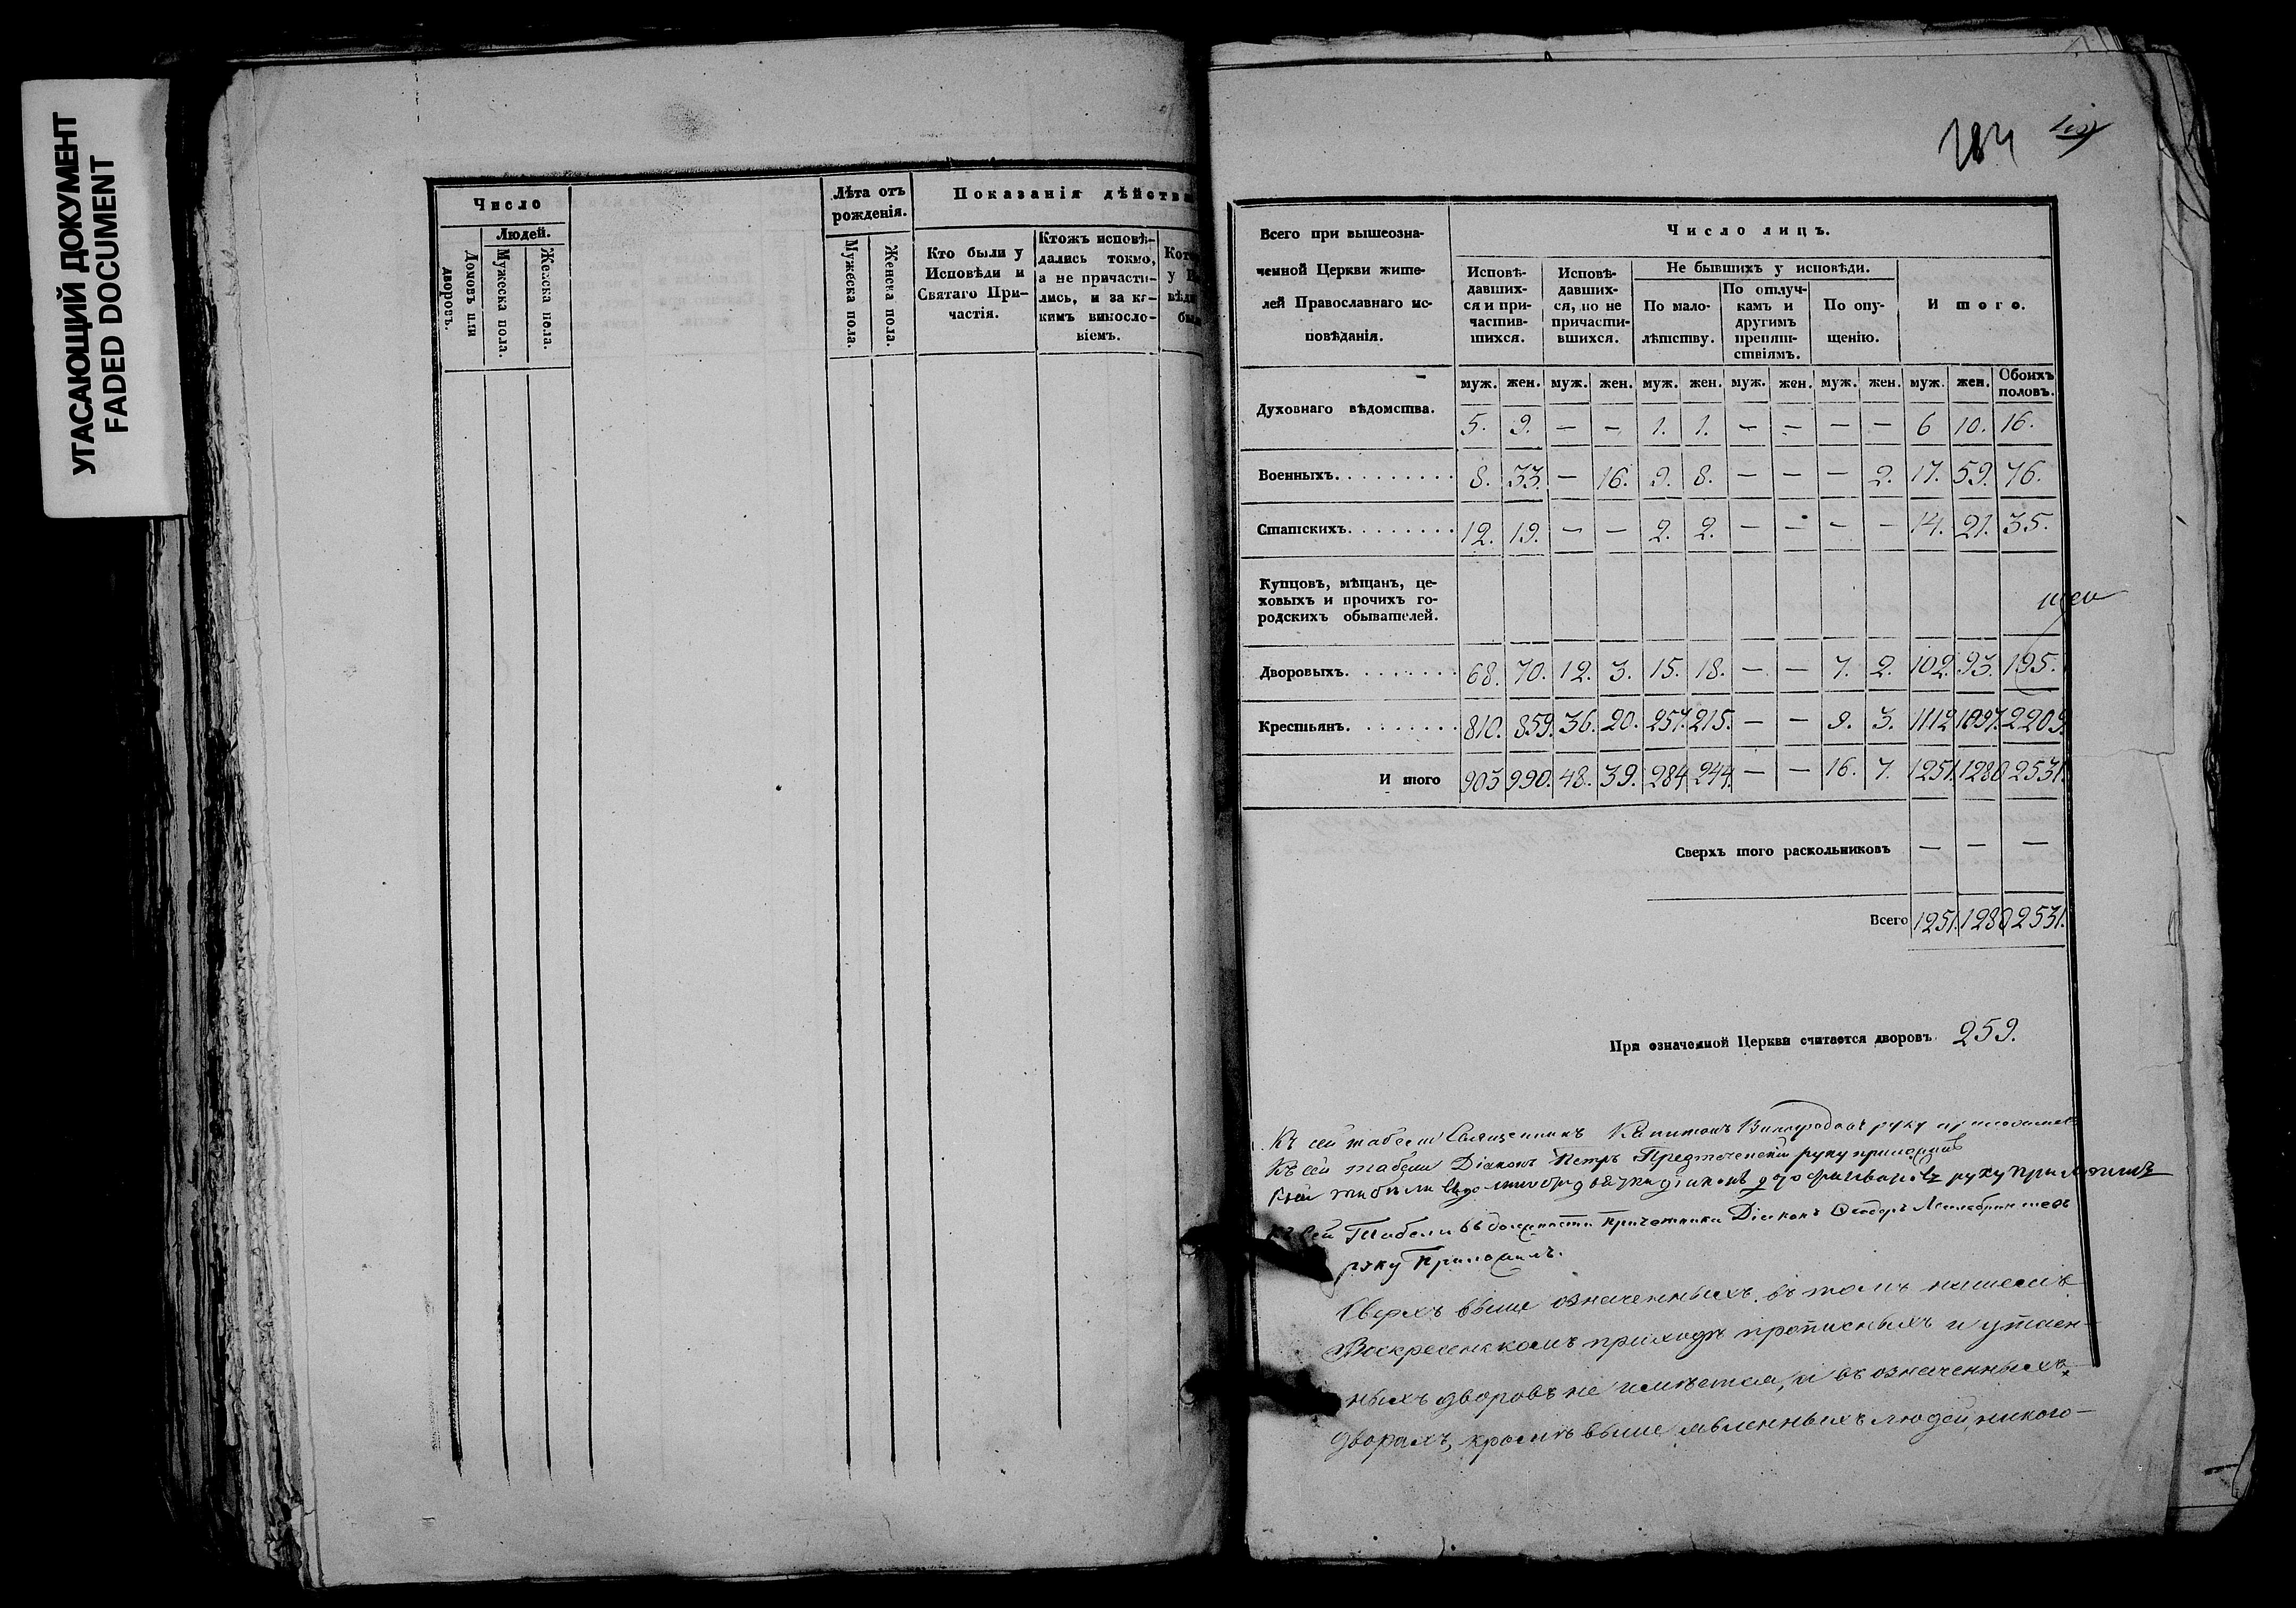 УГАСАЮЩИЙ ДОКУМЕНТ
FADED DOCUMENT
Число
Людей.
Домовъ или дворовъ.
Мужеска пола.
Женска пола.
Лѣта отъ рожденія.
Мужеска пола.
Женска пола.
Показанія дѣйств
Кто были у Исповѣди и Святаго Причастія.
Ктожъ исповѣдались токмо, а не причастились, и за какимъ винословіемъ.
284
Всего при вышеозначенной Церкви жителей Православнаго исповѣданія.
Число лицъ.
Исповѣдавшихся и причастившихся.
Исповѣдавшихся, но не причастившихся.
Не бывшихъ у исповѣди.
По малолѣтству.
По отлучкамъ и другимъ препятствіямъ.
По опущенію.
Итого.
муж. жен. муж. жен. муж. жен. муж. жен. муж. жен. муж. жен. Обоихъ половъ.
Духовнаго вѣдомства. 5. 9. — — 1. 1. — — — — 6 10. 16.
Военныхъ. 8. 33. — 16. 9. 8. — — — 2. 17. 59. 76.
Статскихъ. 12. 19. — — 2. 2. — — — — 14. 21. 35.
Купцовъ, мѣщанъ, цеховыхъ и прочихъ городскихъ обывателей.
Дворовыхъ. 68. 70. 12. 3. 15. 18. — — 7. 2. 102. 93. 195.
Крестьянъ. 810. 859. 36. 20. 257. 215. — — 9. 3. 1112 1097. 2209.
Итого 903 990. 48. 39. 284 244. — — 16. 7. 1251. 1280 2531.
Сверхъ того раскольниковъ — — —
Всего 1251. 1280 2531.
При означенной Церкви считается дворовъ 259.
Къ сей табели Священникъ Капитонъ руку
Къ сей табели Діаконъ Петръ Предтеченскій руку приложилъ
руку приложилъ
Къ сей Табели въ должности причетника Діаконъ Ѳеодоръ
руку приложилъ.
Сверхъ выше означенныхъ въ томъ нашемъ
Воскресенскомъ приходѣ прописныхъ и утаен-
ныхъ дворовъ не имѣется, и въ означенныхъ
дворахъ, кромѣ выше явленныхъ людей, никого-